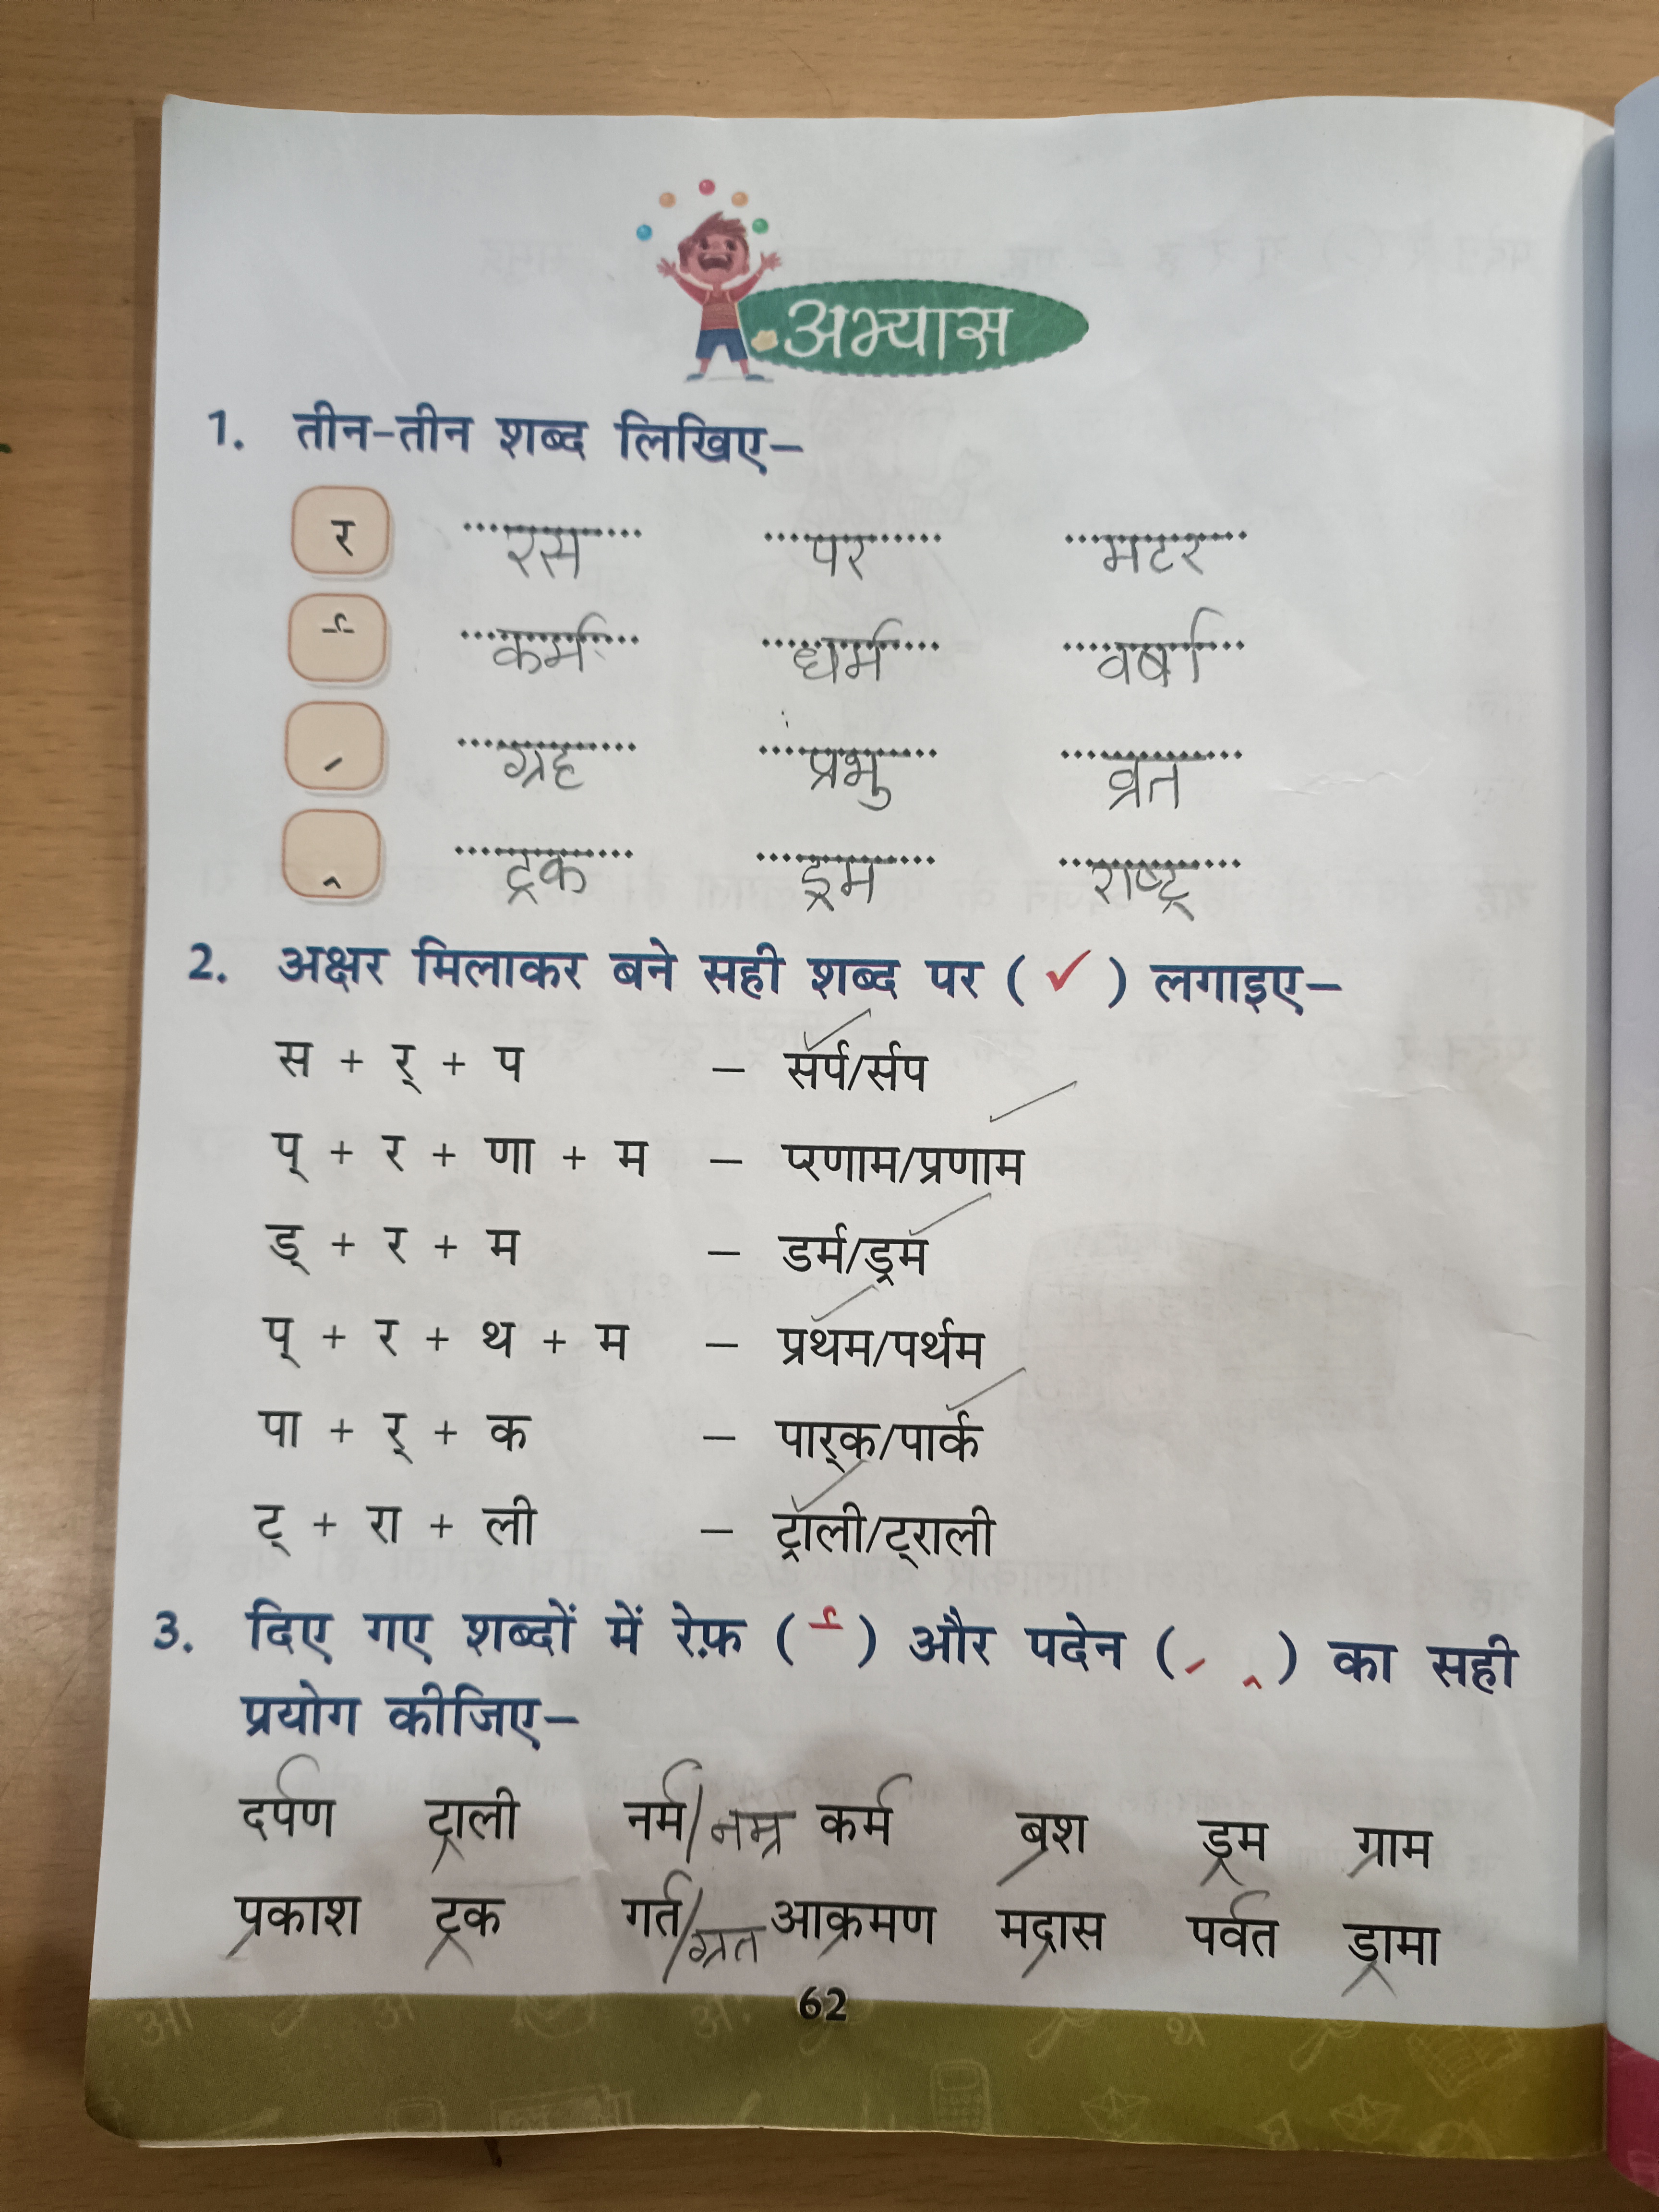 अभ्यास
1. तीन-तीन शब्द लिखिए–
र रस पर मटर
र्‍ कर्म धर्म वर्षा
्र ग्रह प्रभु व्रत
्र ट्रक ड्रम राष्ट्र
2. अक्षर मिलाकर बने सही शब्द पर ( ✓ ) लगाइए–
स + र् + प – सर्प/र्सप
प् + र + णा + म – प्‍रणाम/प्रणाम
ड् + र + म – डर्म/ड्रम
प् + र + थ + म – प्रथम/पर्थम
पा + र् + क – पार्‌क/पार्क
ट् + रा + ली – ट्राली/ट्‌राली
3. दिए गए शब्दों में रेफ़ ( र्‍ ) और पदेन ( ्र ्र ) का सही
प्रयोग कीजिए–
दर्पण ट्राली नर्म/नम्र कर्म ब्रश ड्रम ग्राम
प्रकाश ट्रक गर्त/ग्रत आक्रमण मद्रास पर्वत ड्रामा
62